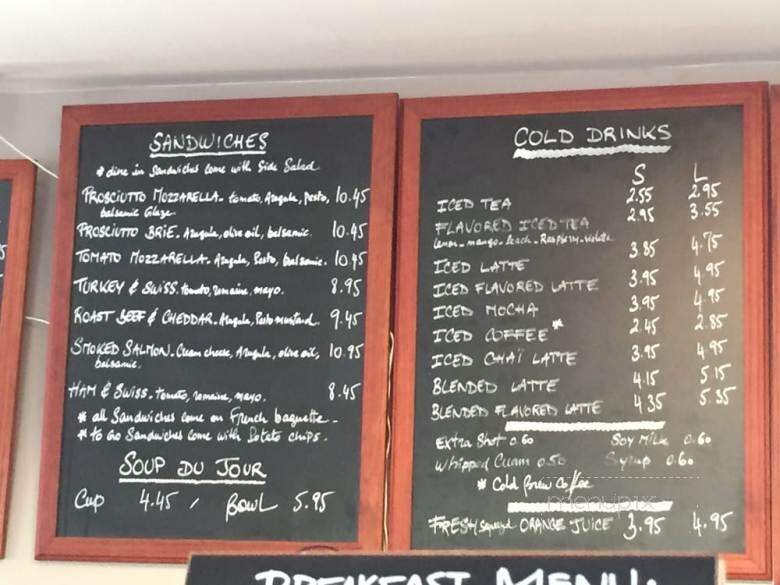 SANDWICHES
* dine in Sandwiches come with Side Salad
PROSCIUTTO MOZZARELLA - tomato, Arugula, Pesto, 10.45
balsamic Glaze
PROSCIUTTO BRIE - Arugula, olive oil, balsamic. 10.45
TOMATO MOZZARELLA - Arugula, Pesto, balsamic. 10.95
TURKEY & SWISS. tomato, romaine, mayo. 8.95
ROAST BEEF & CHEDDAR - Arugula, Pesto mustard. 9.45
SMOKED SALMON - Cream cheese, Arugula, olive oil, 10.95
balsamic.
HAM & SWISS - tomato, romaine, mayo. 8.45
* all Sandwiches come on French baguette -
* to Go Sandwiches come with Potato chips.
SOUP DU JOUR
Cup 4.45 / BOWL 5.95
COLD DRINKS
S L
ICED TEA 2.55 2.95
FLAVORED ICED TEA 2.95 3.55
lemon - mango - Peach - Raspberry - violette
ICED LATTE 3.85 4.75
ICED FLAVORED LATTE 3.95 4.95
ICED MOCHA 3.95 4.95
ICED COFFEE * 2.45 2.85
ICED CHAÏ LATTE 3.95 4.95
BLENDED LATTE 4.15 5.15
BLENDED FLAVORED LATTE 4.35 5.35
Extra Shot 0.60 Soy Milk 0.60
Whipped Cream 0.50 Syrup 0.60
* Cold Brew Coffee
menupix
FRESH Squeezed ORANGE JUICE 3.95 4.95
BREAKFAST MENU: